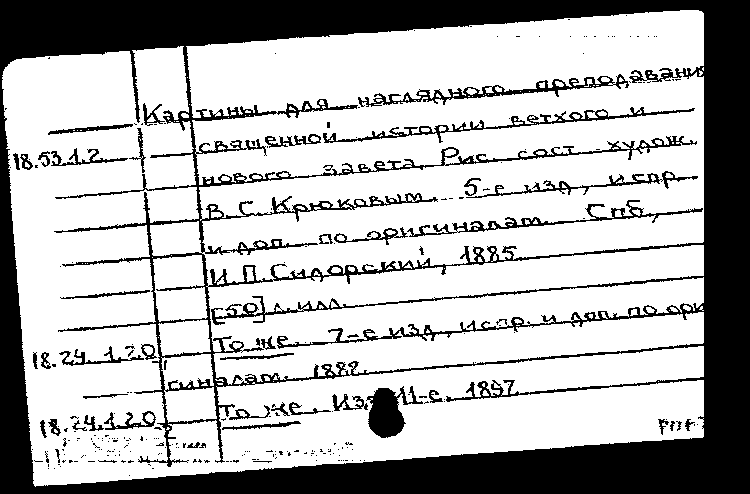 Картины для наглядного преподавания
18.53.1.2 священной истории ветхого и
нового завета. Рис. сост. худож.
В. С. Крюковым. 5-е изд., испр.
и доп. по оригиналам. Спб.,
И. П. Сидорский, 1885.
[50] л. илл.
18.24.1.20 То же. 7-е изд., испр. и доп. по ори
гиналам. 1888.
18.24.1.20 То же. Изд. 11-е. 1897